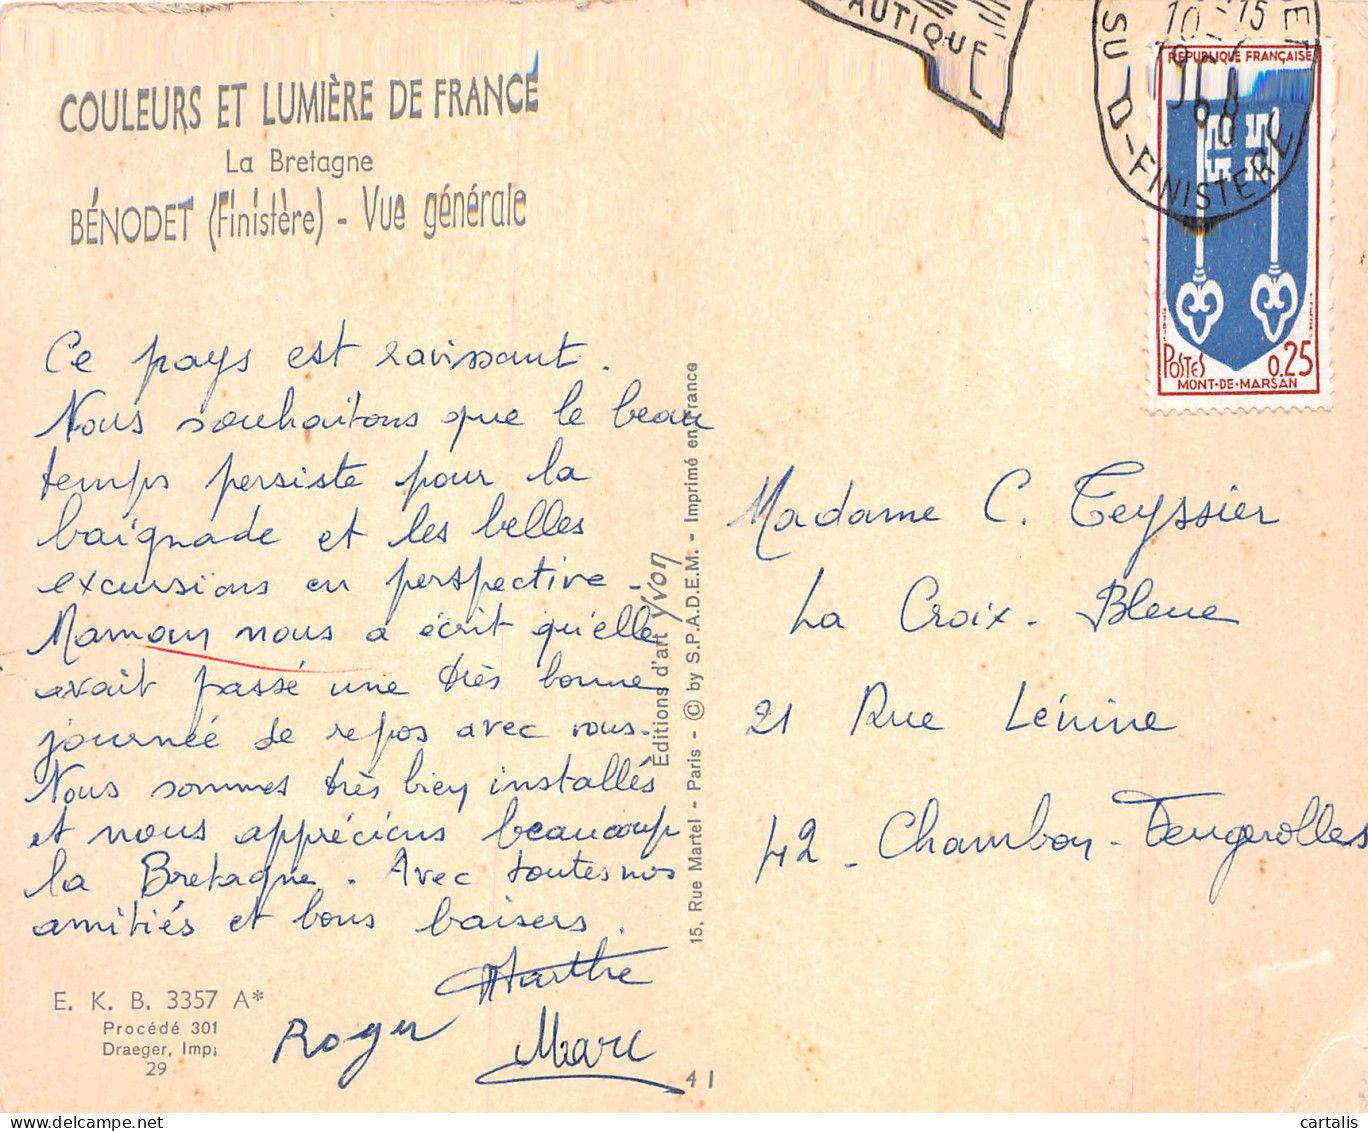 COULEURS ET LUMIÈRE DE FRANCE
La Bretagne
BÉNODET (Finistère) - Vue générale
Ce pays est ravissant.
Nous souhaitons que le beau
temps persiste pour la
baignade et les belles
excursions en perspective -
Mamoun nous a écrit qu'elle
avait passé une très bonne
journée de repos avec vous.
Nous sommes très bien installés
et nous apprécions beaucoup
la Bretagne. Avec toutes nos
amitiés et bons baisers.
Marthe
Roger
Marc
E. K. B. 3357 A*
Procédé 301
Draeger, Imp.
29
Éditions d'art Yvon
15, Rue Martel - Paris - © by S.P.A.D.E.M. - Imprimé en France
41
AUTIQUE
10-15
SUD-FINISTERE
REPUBLIQUE FRANÇAISE
POSTES
0.25
MONT-DE-MARSAN
Madame C. Teyssier
La Croix-Bleue
21 Rue Lénine
42 - Chambon-Feugerolles
cartalis